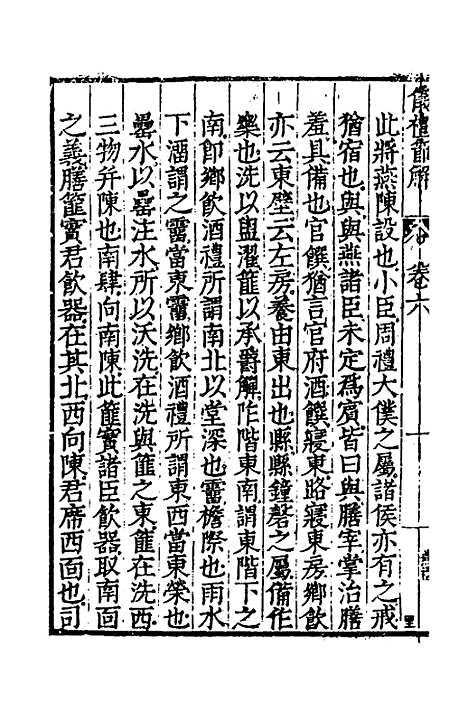 儀禮節解
卷六
此將燕陳設也小臣周禮大僕之屬諸侯亦有之戒
猶宿也與與燕諸臣未定爲賓皆曰與膳宰掌治膳
羞具備也官饌猶言官府酒饌寢東路寢東房鄉飲
亦云東壁云左房養由東出也縣縣鐘磬之屬備作
樂也洗以盥濯篚以承爵觶阼階東南謂東階下之
南卽鄉飲酒禮所謂南北以堂深也霤檐際也雨水
下溜謂之霤當東霤鄉飲酒禮所謂東西當東榮也
罍水以罍注水所以沃洗在洗與篚之東篚在洗西
三物幷陳也南肆向南陳此篚實諸臣飲器取南面
之義膳篚實君飲器在其北西向陳君席西面也司